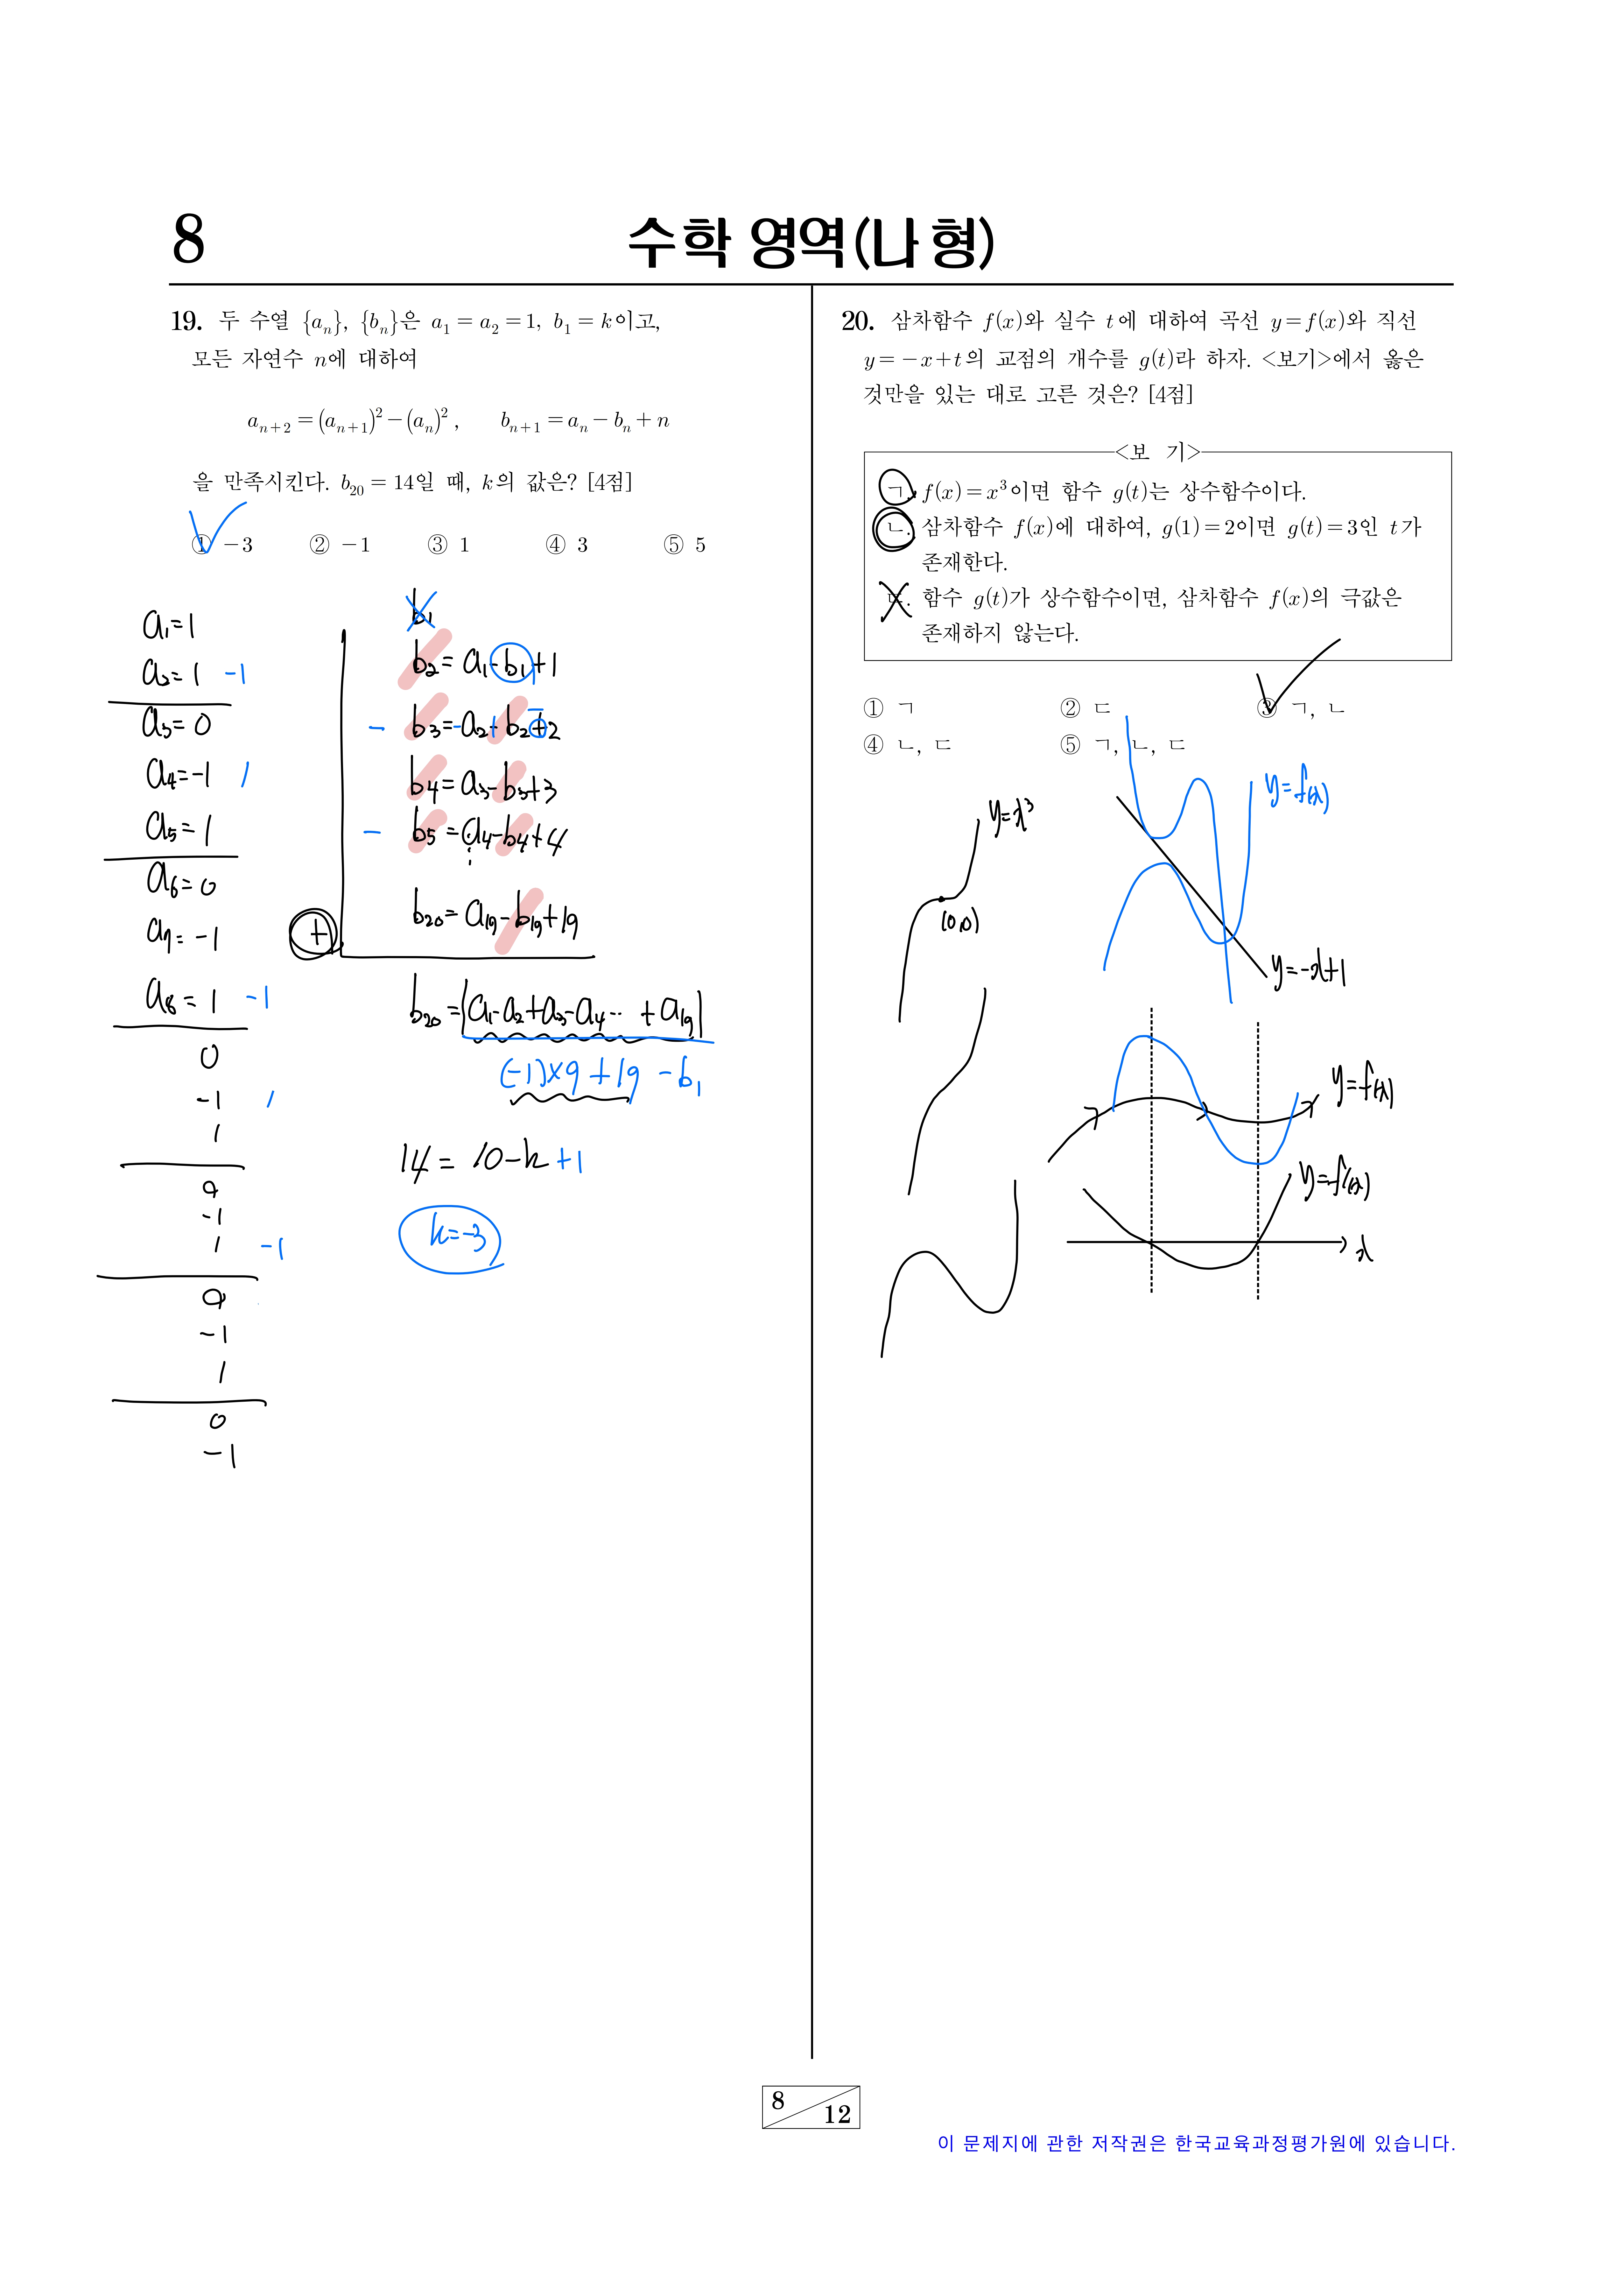 8
수학 영역(나 형)
19. 두 수열 {aₙ}, {bₙ}은 a₁ = a₂ = 1, b₁ = k이고,
모든 자연수 n에 대하여
aₙ₊₂ = (aₙ₊₁)² − (aₙ)², bₙ₊₁ = aₙ − bₙ + n
을 만족시킨다. b₂₀ = 14일 때, k의 값은? [4점]
① −3 ② −1 ③ 1 ④ 3 ⑤ 5
a₁=1
a₂=1 -1
a₃=0
a₄=-1 1
a₅=1
a₆=0
a₇=-1
a₈=1 -1
0
-1 1
1
0
-1
1 -1
0
-1
1
0
-1
b₁
b₂=a₁-b₁+1
- b₃=-a₂+b₂-2
b₄=a₃-b₃+3
- b₅=a₄-b₄+4
⋮
b₂₀=a₁₉-b₁₉+19
+
b₂₀=a₁-a₂+a₃-a₄… +a₁₉
(-1)×9+19-b₁
14=10-k+1
k=-3
20. 삼차함수 f(x)와 실수 t에 대하여 곡선 y=f(x)와 직선
y=−x+t의 교점의 개수를 g(t)라 하자. <보기>에서 옳은
것만을 있는 대로 고른 것은? [4점]
<보 기>
ㄱ. f(x)=x³이면 함수 g(t)는 상수함수이다.
ㄴ. 삼차함수 f(x)에 대하여, g(1)=2이면 g(t)=3인 t가
존재한다.
ㄷ. 함수 g(t)가 상수함수이면, 삼차함수 f(x)의 극값은
존재하지 않는다.
① ㄱ ② ㄷ ③ ㄱ, ㄴ
④ ㄴ, ㄷ ⑤ ㄱ, ㄴ, ㄷ
y=x³
(0,0)
y=f(x)
y=-x+1
y=f(x)
y=f'(x)
x
8
12
이 문제지에 관한 저작권은 한국교육과정평가원에 있습니다.